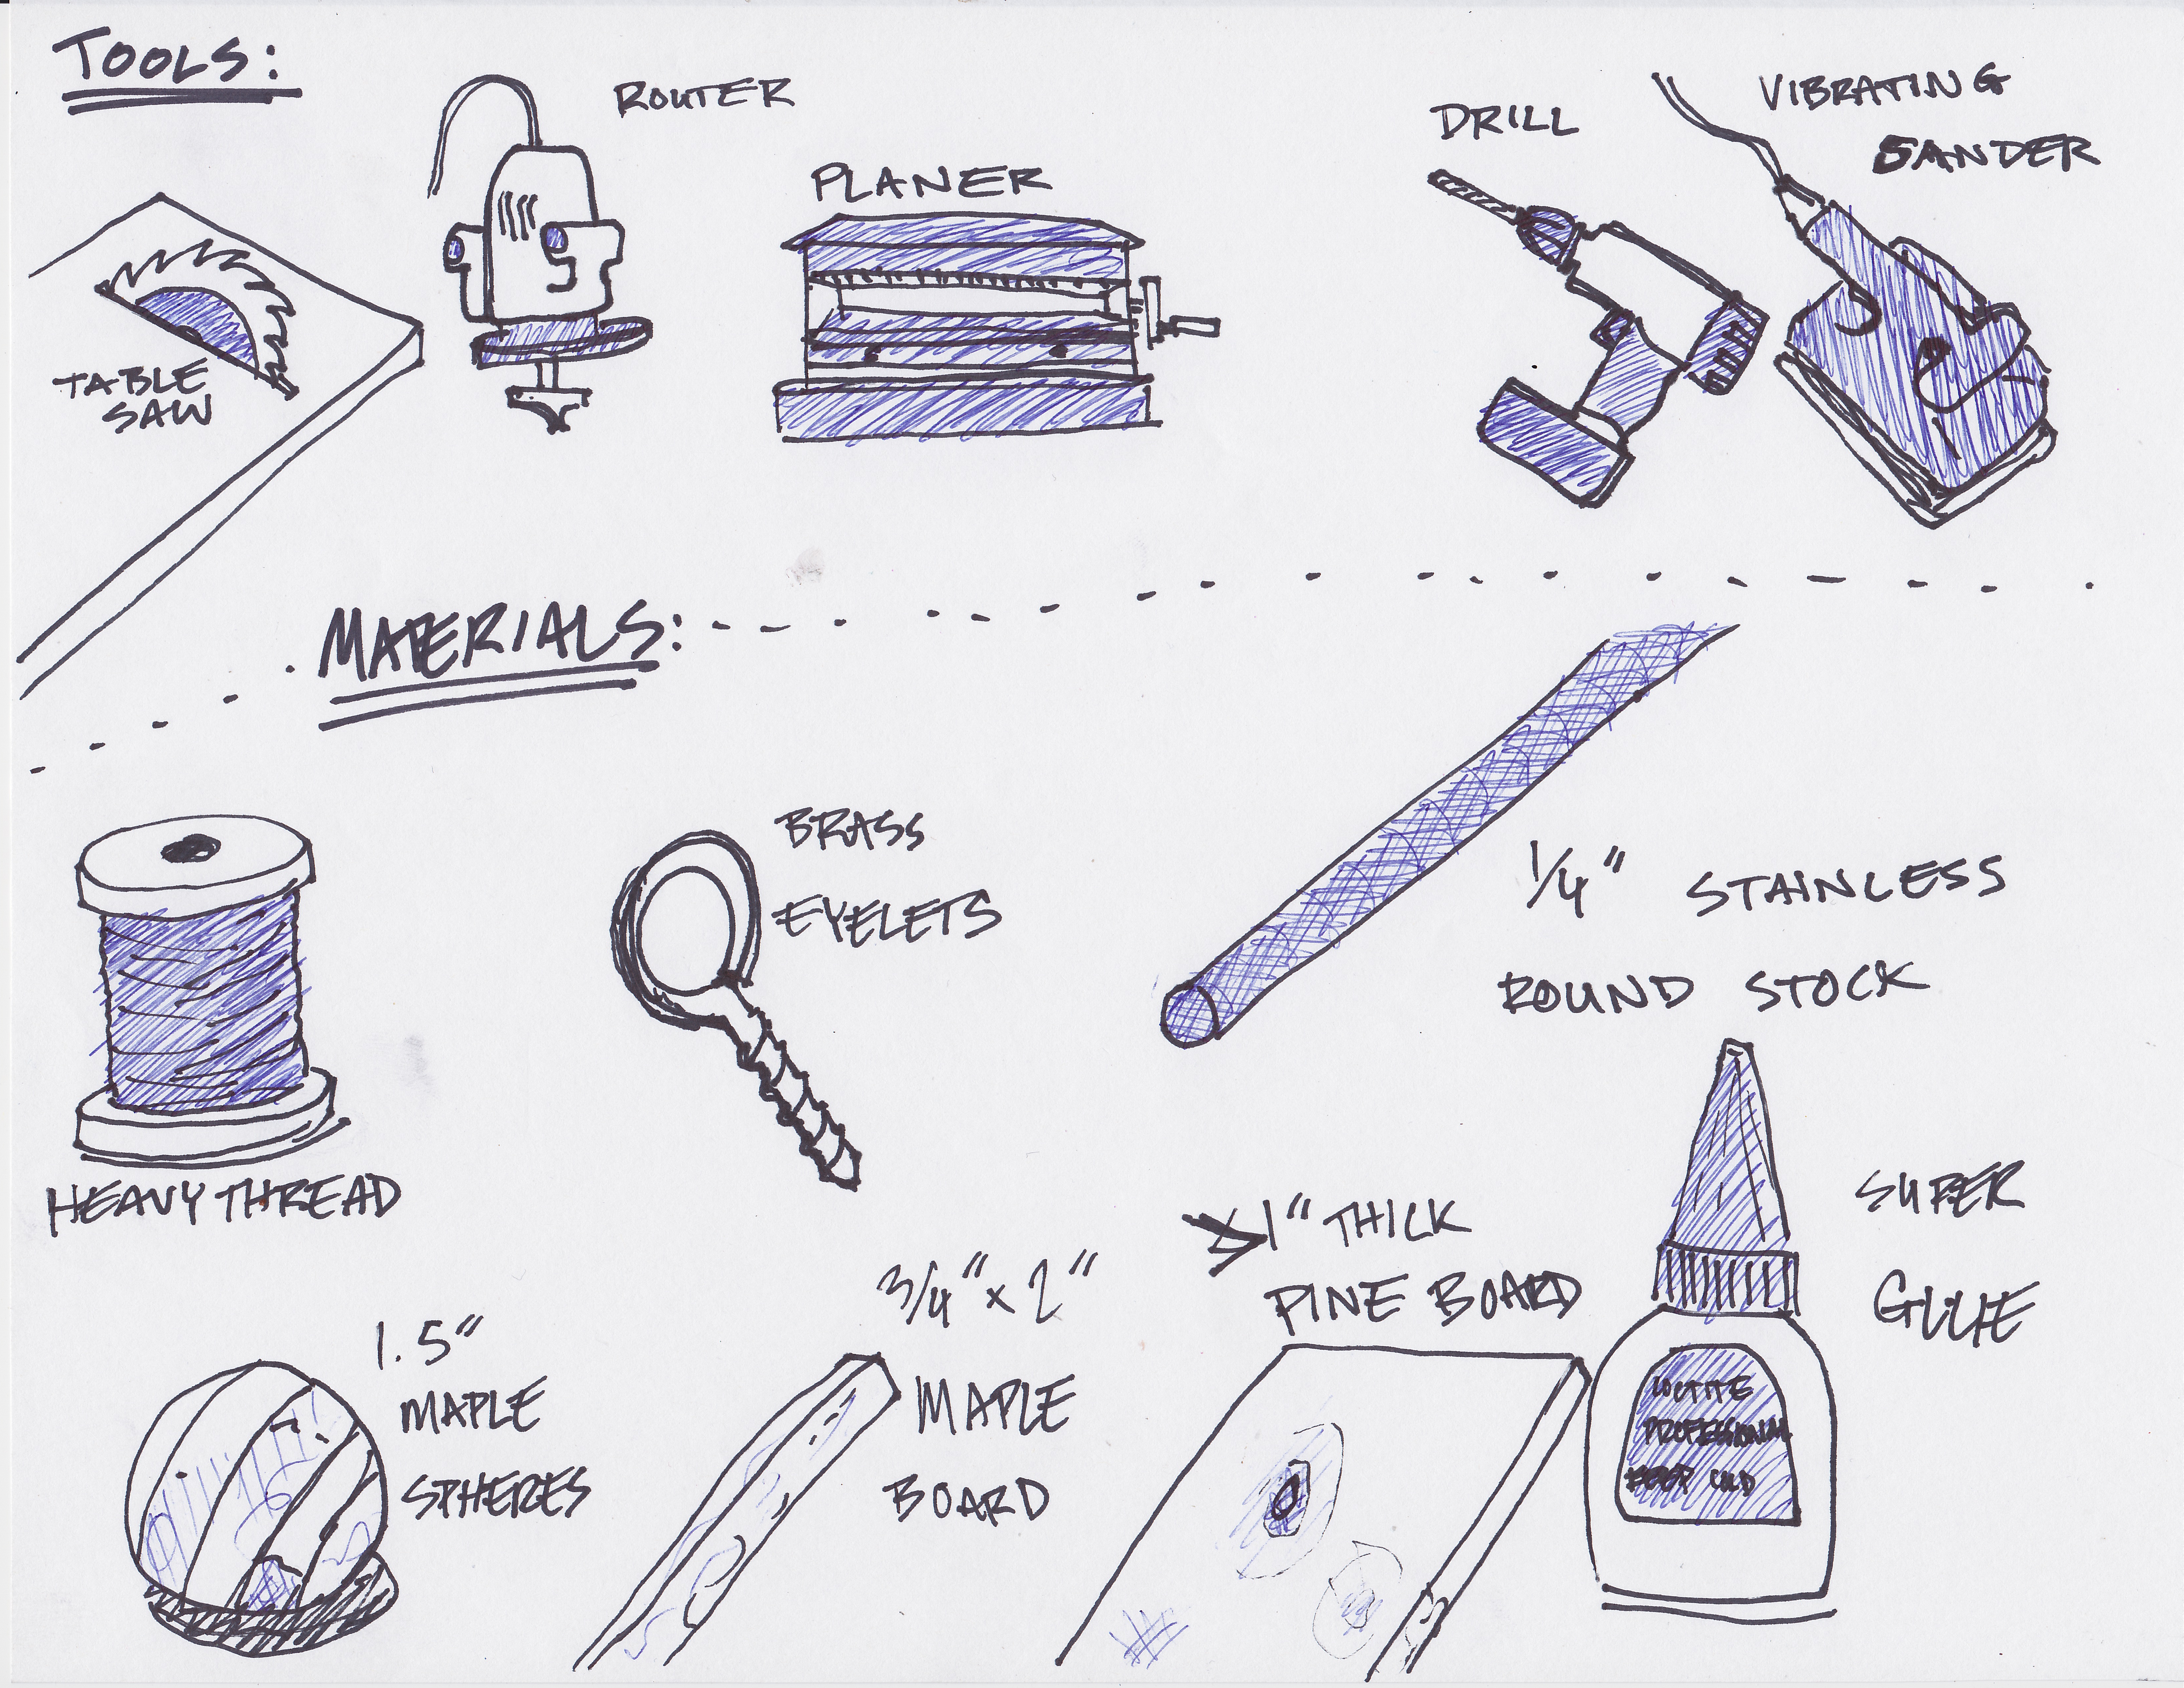 TOOLS:
ROUTER
PLANER
DRILL
VIBRATING
SANDER
TABLE
SAW
MATERIALS:
BRASS
EYELETS
1/4" STAINLESS
ROUND STOCK
HEAVY THREAD
1" THICK
PINE BOARD
SUPER
GLUE
3/4" x 2"
MAPLE
BOARD
1.5"
MAPLE
SPHERES
LOCTITE
PROFESSIONAL
KEEP COLD